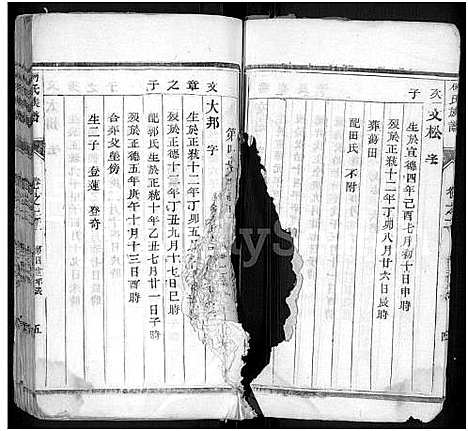 次子
文松 字
生於宣德四年己酉七月初十日申時
歿於正統十二年丁卯八月廿六日辰時
葬蕩田
配田氏 不附
文章之子
大邦 字
生於正統十二年丁卯五
歿於正德十二年丁丑九月十七日巳時
配郭氏生於正統十年乙丑七月廿一日子時
歿於正德五年庚午十月十三日酉時
合葬父塋傍
生二子 登蓮 登奇
五